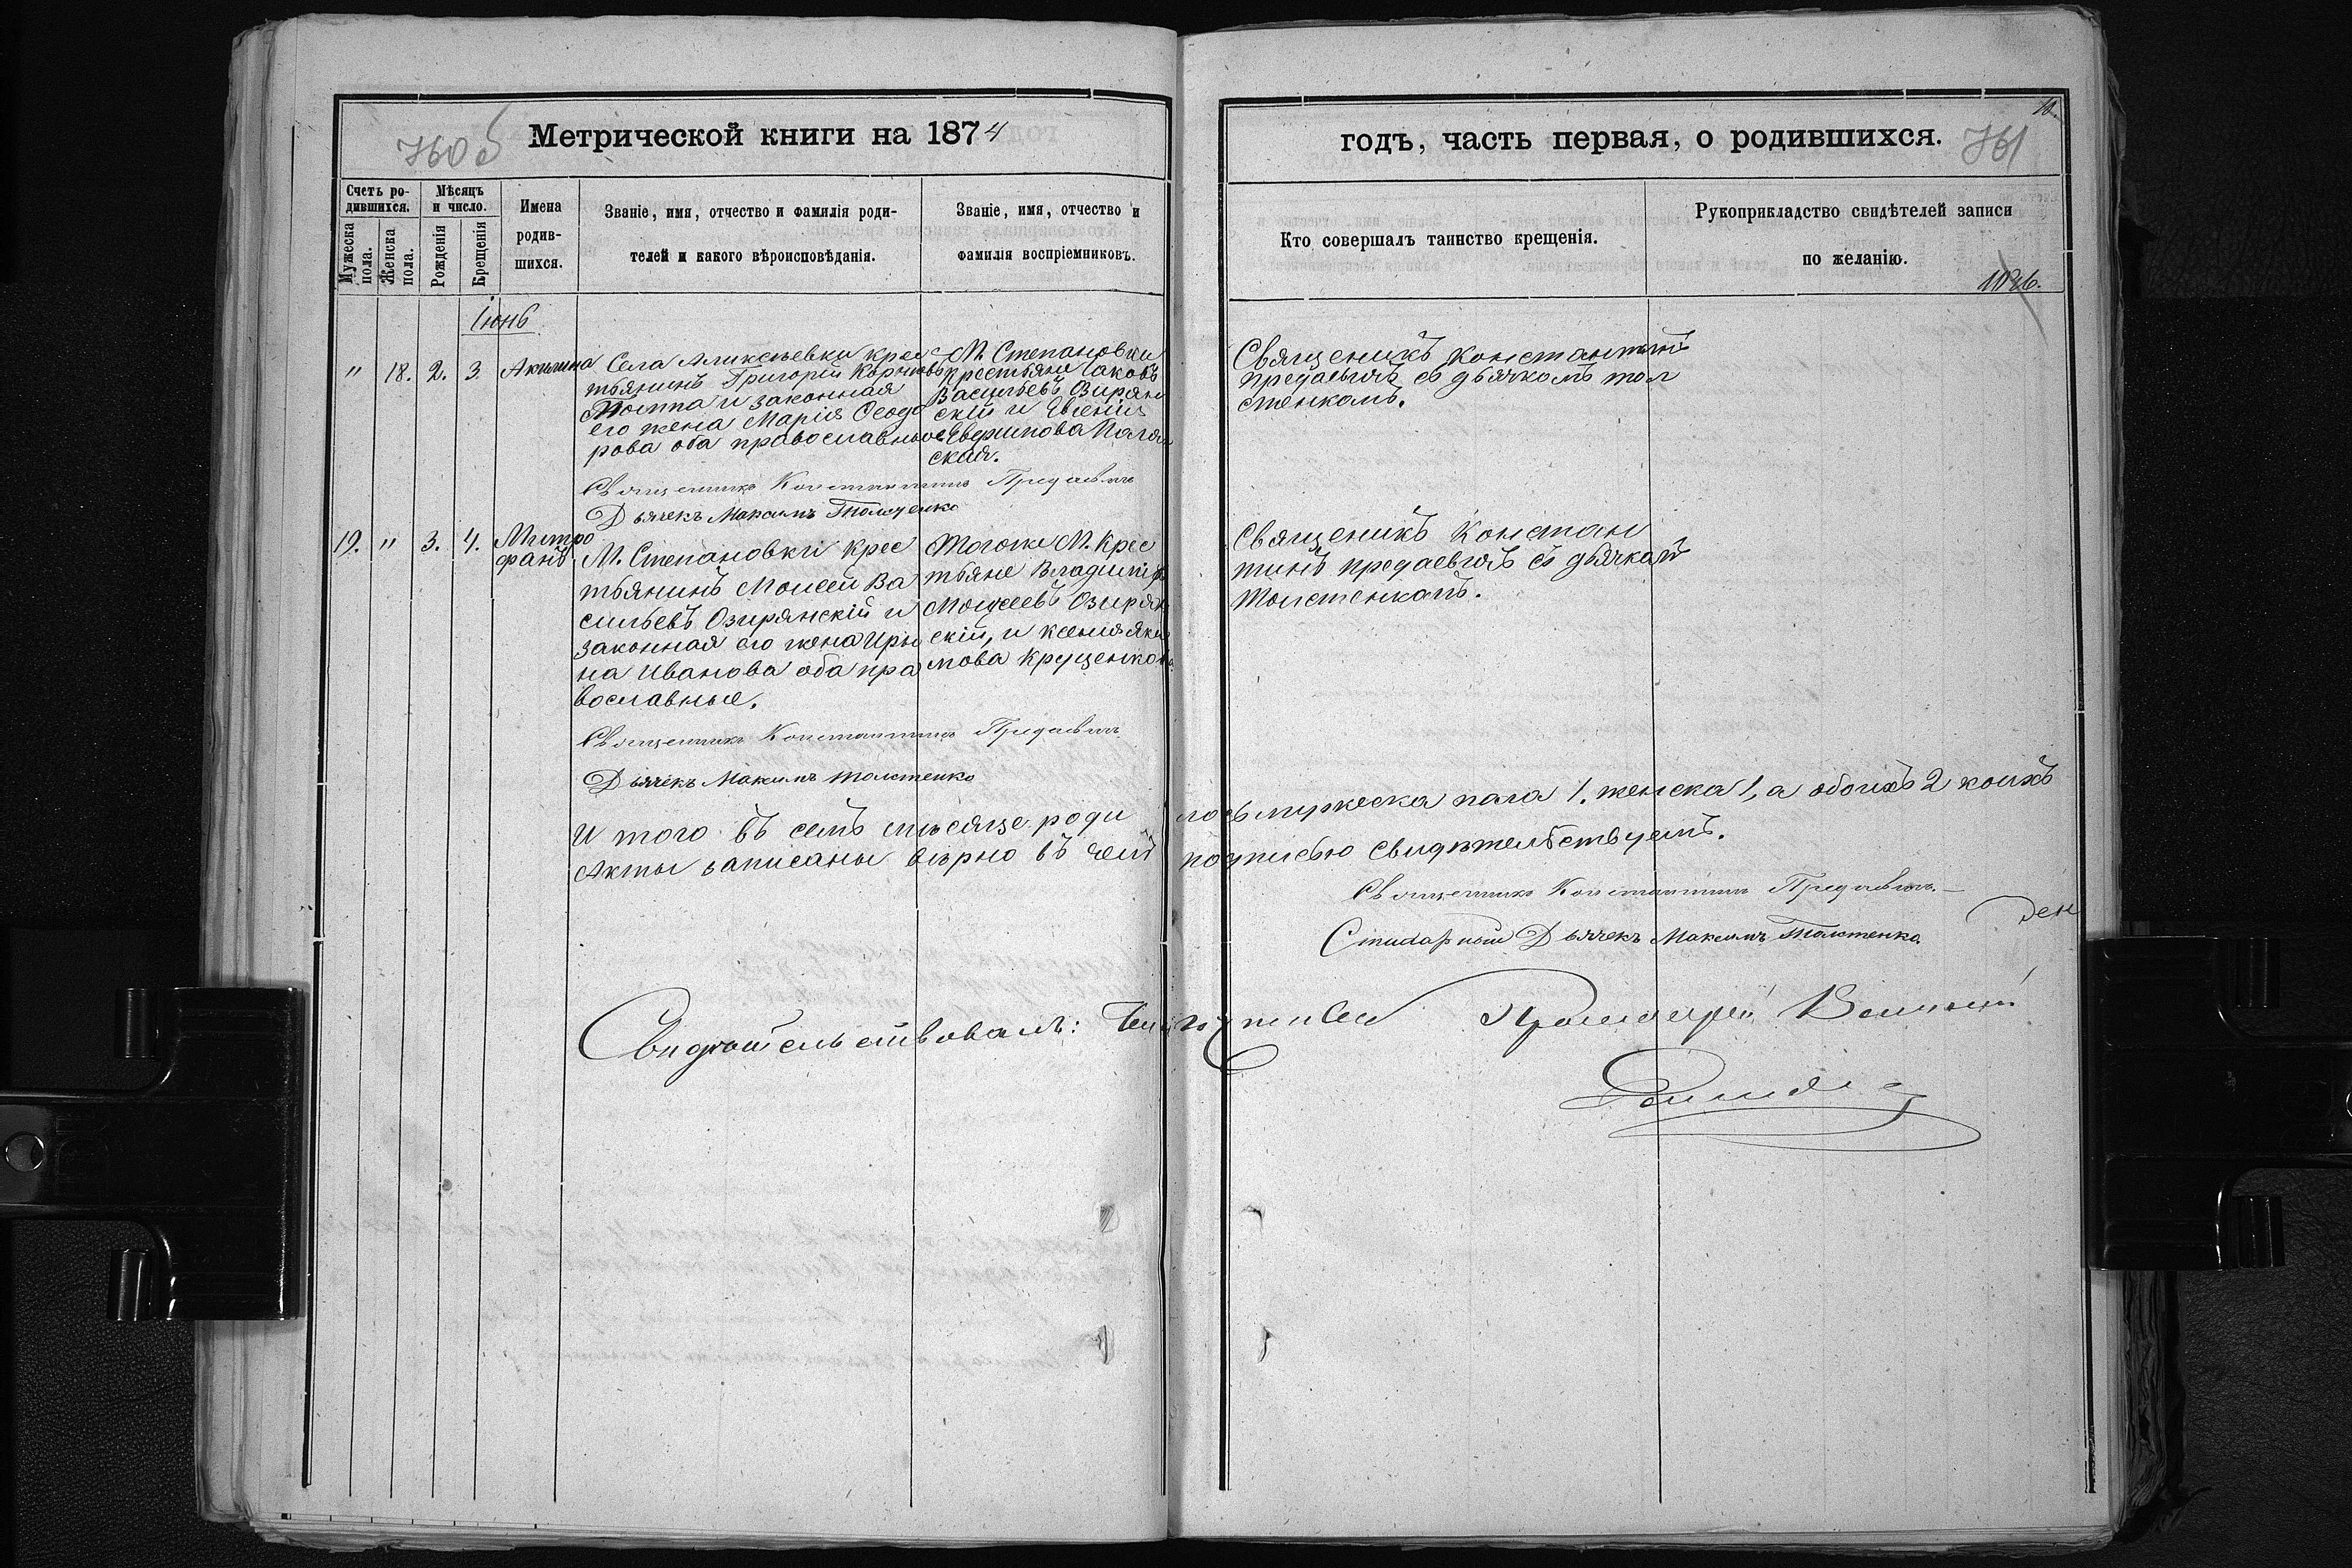 760
Метрической книги на 1874
годъ, часть первая, о родившихся.
761
Счетъ ро-
дившихся.
Мѣсяцъ
и число.
Мужеска
пола.
Женска
пола.
Рожденія
Крещенія
Имена
родив-
шихся.
Званіе, имя, отчество и фамилія роди-
телей и какого вѣроисповѣданія.
Званіе, имя, отчество и
фамилія воспріемниковъ.
Кто совершалъ таинство крещенія.
Рукоприкладство свидѣтелей записи
по желанію.
Іюнь
" 18. 2. 3. Акилина
Села Аликсѣевки крес
тьянинъ Григорій
и законная
его жена Марія Ѳеодо
рова оба православные
М. Степановки
крестьяне Іаковъ
Васильевъ Озирян
скій и Евгенія
ская.
Священикъ Константинъ
предаевичъ съ дьячкомъ тол
стенкомъ.
Священникъ Константинъ Предаевичъ
Дьячекъ Максимъ Толстенко
19. " 3. 4. Митро
фанъ
М. Степановки крес
тьянинъ Моисей Ва
сильевъ Озирянскій и
законная его жена Ири
на Иванова оба пра
вославные.
Тогоже М. крес
тьяне Владиміръ
Моисеевъ Озирян
скій, и ксенія яки
мова Крущенкова
Священикъ Констан
тинъ предаевичъ съ дьячком
толстенкомъ.
Священникъ Константинъ Предаевичъ
Дьячекъ Максимъ Толстенко
И того въ семъ мѣсяце роди лось мужеска пола 1. женска 1, а обоихъ 2 коихъ
Акты записаны вѣрно въ чемъ подписью свидѣтельствуемъ.
Священникъ Константинъ Предаевичъ.
Стихарный Дьячекъ Максимъ Толстенко
Свидѣтельствовалъ: